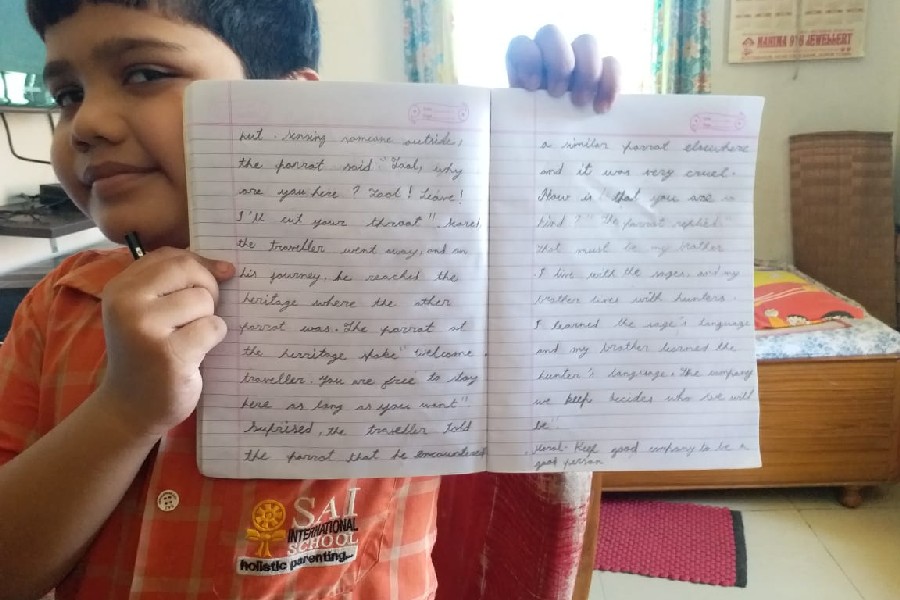 hut. Sensing someone outside,
the parrot said "Fool, why
are you here? Fool! Leave!
I'll cut your throat". Scared
the traveller went away, and on
his journey. he reached the
heritage where the other
parrot was. The parrot at
the herritage spoke "Welcome
traveller. You are free to stay
here as long as you want"
Suprised, the traveller told
the parrot that he encountered
a similar parrot elsewhere
and it was very cruel.
How is that you are so
kind?" The parrot replied
that must be my brother
I live with the sages, and my
brother lives with hunters.
I learned the sage's language
and my brother learned the
hunter's language. The company
we keep decides who we will
be".
Moral- Keep good company to be a
good person
MAHIMA 916 JEWELLERY
SAI
INTERNATIONAL
SCHOOL
holistic parenting...